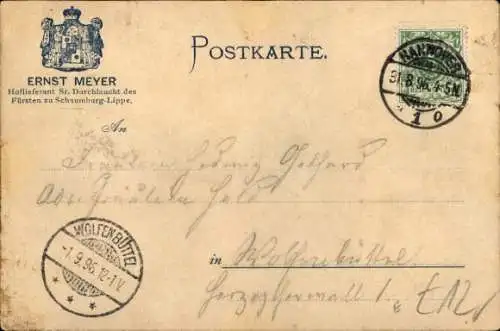 POSTKARTE.
ERNST MEYER
Hoflieferant Sr. Durchlaucht des
Fürsten zu Schaumburg-Lippe.
HANNOVER
8.96. 4-5N
1 o
An
Fräulein Hedwig Gebhard
WOLFENBÜTTEL
-1.9.96.12-1V.
in Wolfenbüttel
Herzogthorwall 1.